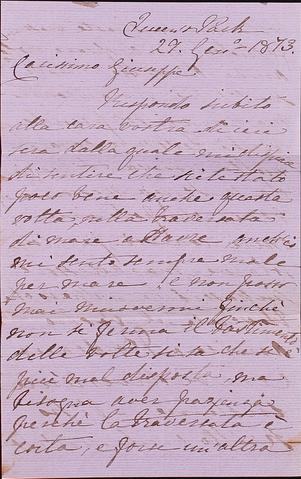 Queen's Park
27. Gen.º 1873.
Carissimo Giuseppe
Rispondo subito
alla cara vostra di ieri
sera dalla quale mi dispiace
di sentire che sei stato
poco bene anche questa
volta, nella traversata
di mare a Havre anch'io
mi sento sempre male
per mare e non posso
mai muovermi finchè
non si ferma il bastimento
delle volte si sa che si è
più mal disposta, ma
bisogna aver pazienza
perchè la traversata è
corta, e forse un'altra